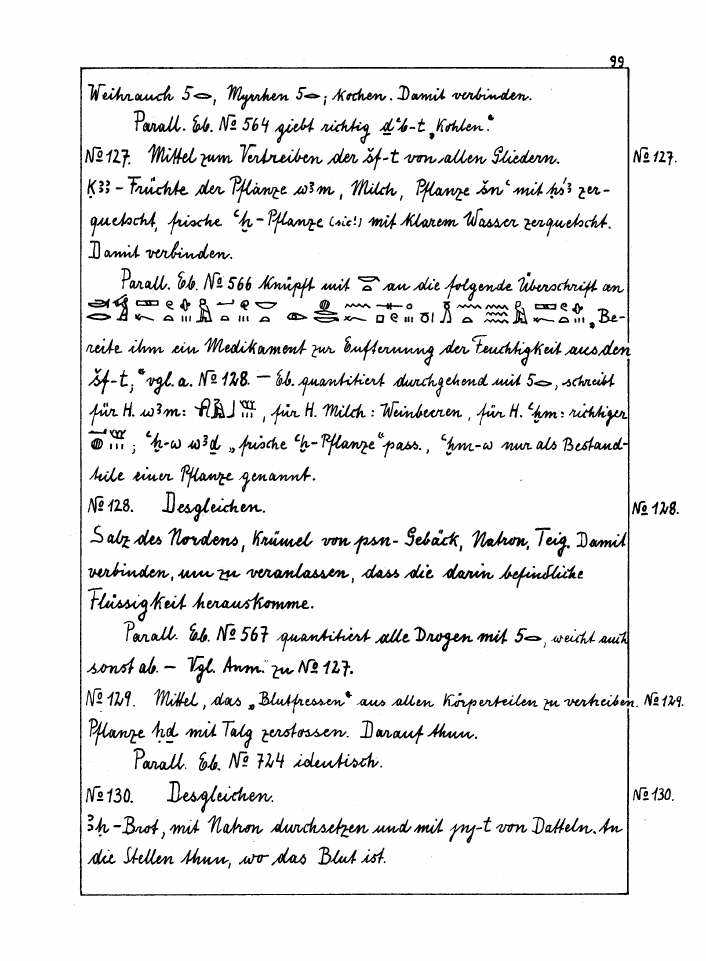 99
Weihrauch 5𓂋, Myrrhen 5𓂋; Kochen. Damit verbinden.
Parall. Eb. № 564 giebt richtig ḏꜥb-t „Kohlen."
№ 127. Mittel zum Vertreiben der šf-t von allen Gliedern. № 127.
Kꜣꜣ-Früchte der Pflanze wꜣm, Milch, Pflanze šnꜥ mit ḥsꜣ zer-
quetscht, frische ꜥḫ-Pflanze (sic!) mit klarem Wasser zerquetscht.
Damit verbinden.
Parall. Eb. № 566 Knüpft mit an die folgende Überschrift an
„Be-
reite ihm ein Medikament zur Entfernung der Feuchtigkeit aus den
šf-t;" vgl. a. № 128. — Eb. quantitiert durchgehend mit 5𓂋, schreibt
für H. wꜣm: , für H. Milch: Weinbeeren, für H. ꜥḫm: richtiger
; ꜥḫ-w wꜣḏ „frische ꜥḫ-Pflanze" pass., ꜥḫm-w nur als Bestand-
teile einer Pflanze genannt.
№ 128. Desgleichen. № 128.
Salz des Nordens, Krümel von psn-Gebäck, Natron, Teig. Damit
verbinden, um zu veranlassen, dass die darin befindliche
Flüssigkeit herauskomme.
Parall. Eb. № 567 quantitiert alle Drogen mit 5𓂋, weicht auch
sonst ab. — Vgl. Anm. zu № 127.
№ 129. Mittel, das „Blutfressen" aus allen Körperteilen zu vertreiben. № 129.
Pflanze ḥḏ mit Talg zerstossen. Darauf thun.
Parall. Eb. № 724 identisch.
№ 130. Desgleichen. № 130.
ꜣḫ-Brot, mit Natron durchsetzen und mit von Datteln. An
die Stellen thun, wo das Blut ist.